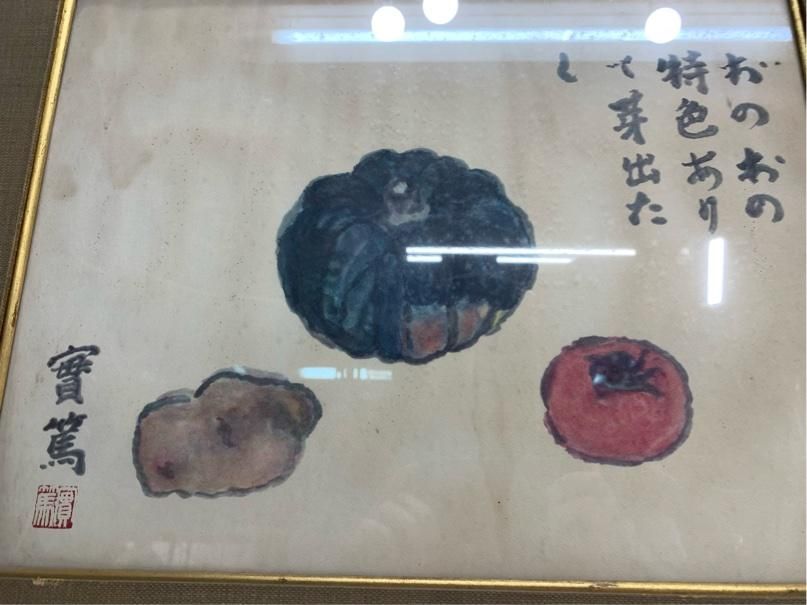 おのおの
特色あり
て芽出た
し
實篤
實篤